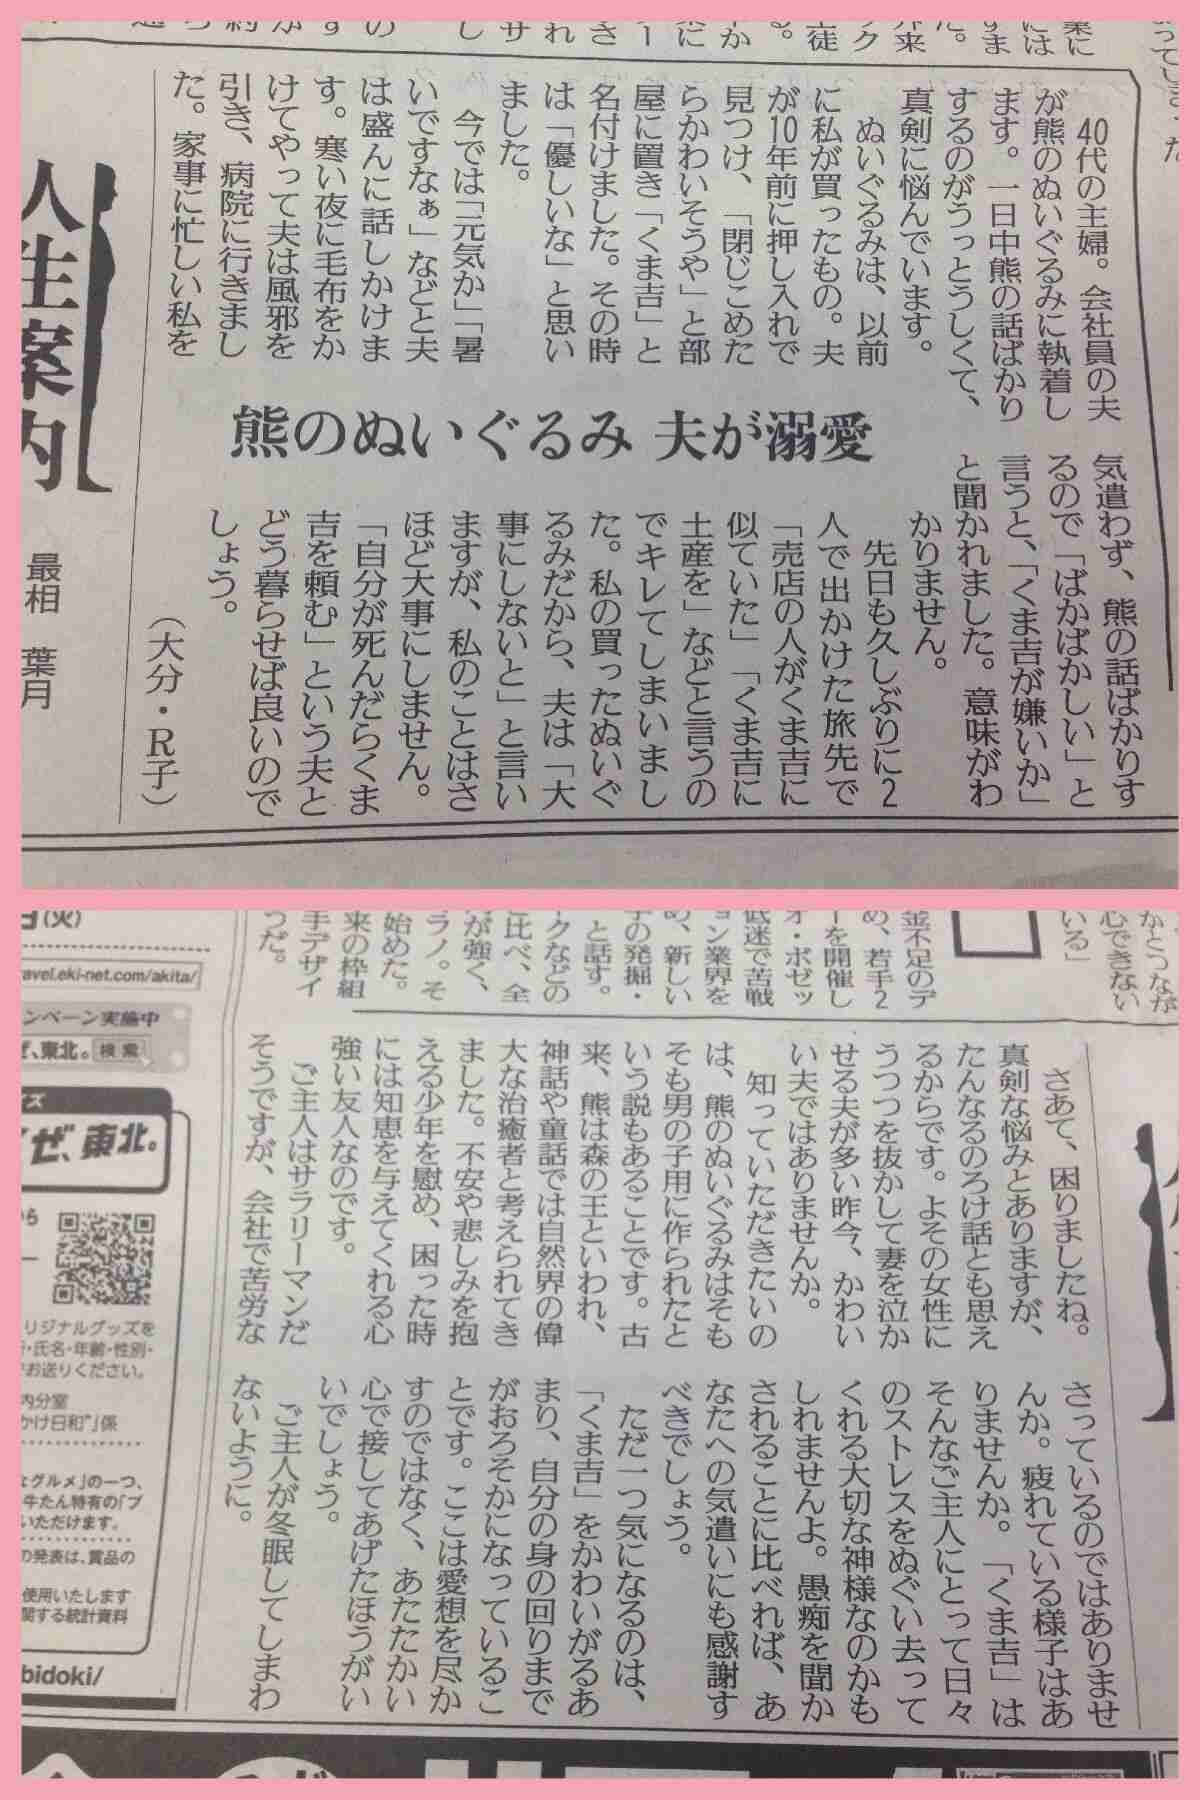 人生案内
最相 葉月
熊のぬいぐるみ 夫が溺愛
40代の主婦。会社員の夫
が熊のぬいぐるみに執着し
ます。一日中熊の話ばかり
するのがうっとうしくて、
真剣に悩んでいます。
ぬいぐるみは、以前
に私が買ったもの。夫
が10年前に押し入れで
見つけ、「閉じこめた
らかわいそうや」と部
屋に置き「くま吉」と
名付けました。その時
は「優しいな」と思い
ました。
今では「元気か」「暑
いですなぁ」などと夫
は盛んに話しかけま
す。寒い夜に毛布をか
けてやって夫は風邪を
引き、病院に行きまし
た。家事に忙しい私を
気遣わず、熊の話ばかりす
るので「ばかばかしい」と
言うと、「くま吉が嫌いか」
と聞かれました。意味がわ
かりません。
先日も久しぶりに2
人で出かけた旅先で
「売店の人がくま吉に
似ていた」「くま吉に
土産を」などと言うの
でキレてしまいまし
た。私の買ったぬいぐ
るみだから、夫は「大
事にしないと」と言い
ますが、私のことはさ
ほど大事にしません。
「自分が死んだらくま
吉を頼む」という夫と
どう暮らせば良いので
しょう。
(大分・R子)
さあて、困りましたね。
真剣な悩みとありますが、
たんなるのろけ話とも思え
るからです。よその女性に
うつつを抜かして妻を泣か
せる夫が多い昨今、かわい
い夫ではありませんか。
知っていただきたいの
は、熊のぬいぐるみはそも
そも男の子用に作られたと
いう説もあることです。古
来、熊は森の王といわれ、
神話や童話では自然界の偉
大な治癒者と考えられてき
ました。不安や悲しみを抱
える少年を慰め、困った時
には知恵を与えてくれる心
強い友人なのです。
ご主人はサラリーマンだ
そうですが、会社で苦労な
さっているのではありませ
んか。疲れている様子はあ
りませんか。「くま吉」は
そんなご主人にとって日々
のストレスをぬぐい去って
くれる大切な神様なのかも
しれませんよ。愚痴を聞か
されることに比べれば、あ
なたへの気遣いにも感謝す
べきでしょう。
ただ一つ気になるのは、
「くま吉」をかわいがるあ
まり、自分の身の回りまで
がおろそかになっているこ
とです。ここは愛想を尽か
すのではなく、あたたかい
心で接してあげたほうがい
いでしょう。
ご主人が冬眠してしまわ
ないように。
金不足のデ
め、若手2
ーを開催し
オ・ボゼッ
低迷で苦戦
ョン業界を
め、新しい
子の発掘・
と話す。
クなどの
比べ、全
が強く、
ラノ。そ
始めた。
来の枠組
手デザイ
つだ。
心できない
いる」
(火)
ravel.eki-net.com/akita/
ンペーン実施中
ぜ、東北。検索
ぜ、東北。
リジナルグッズを
・氏名・年齢・性別・
お送りください。
内分室
かけ日和"」係
なグルメ」の一つ、
牛たん特有の「プ
いただけます。
の発表は、賞品の
使用いたします
関する統計資料
bidoki/